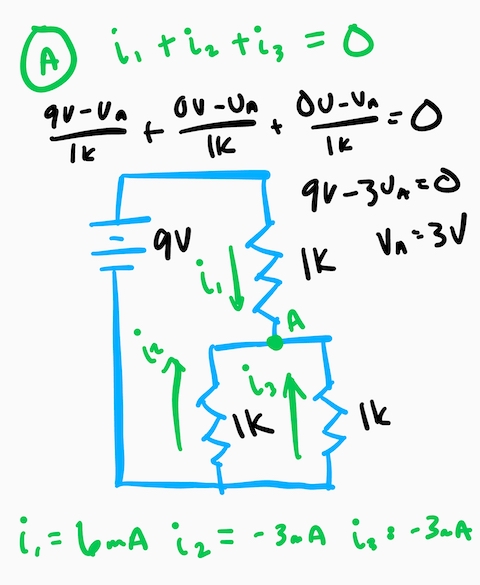 A i₁ + i₂ + i₃ = 0
(9V - VA)/1K + (0V - VA)/1K + (0V - VA)/1K = 0
9V - 3VA = 0
VA = 3V
9V
i₁
1K
A
i₂
i₃
1K
1K
i₁ = 6mA i₂ = -3mA i₃ = -3mA